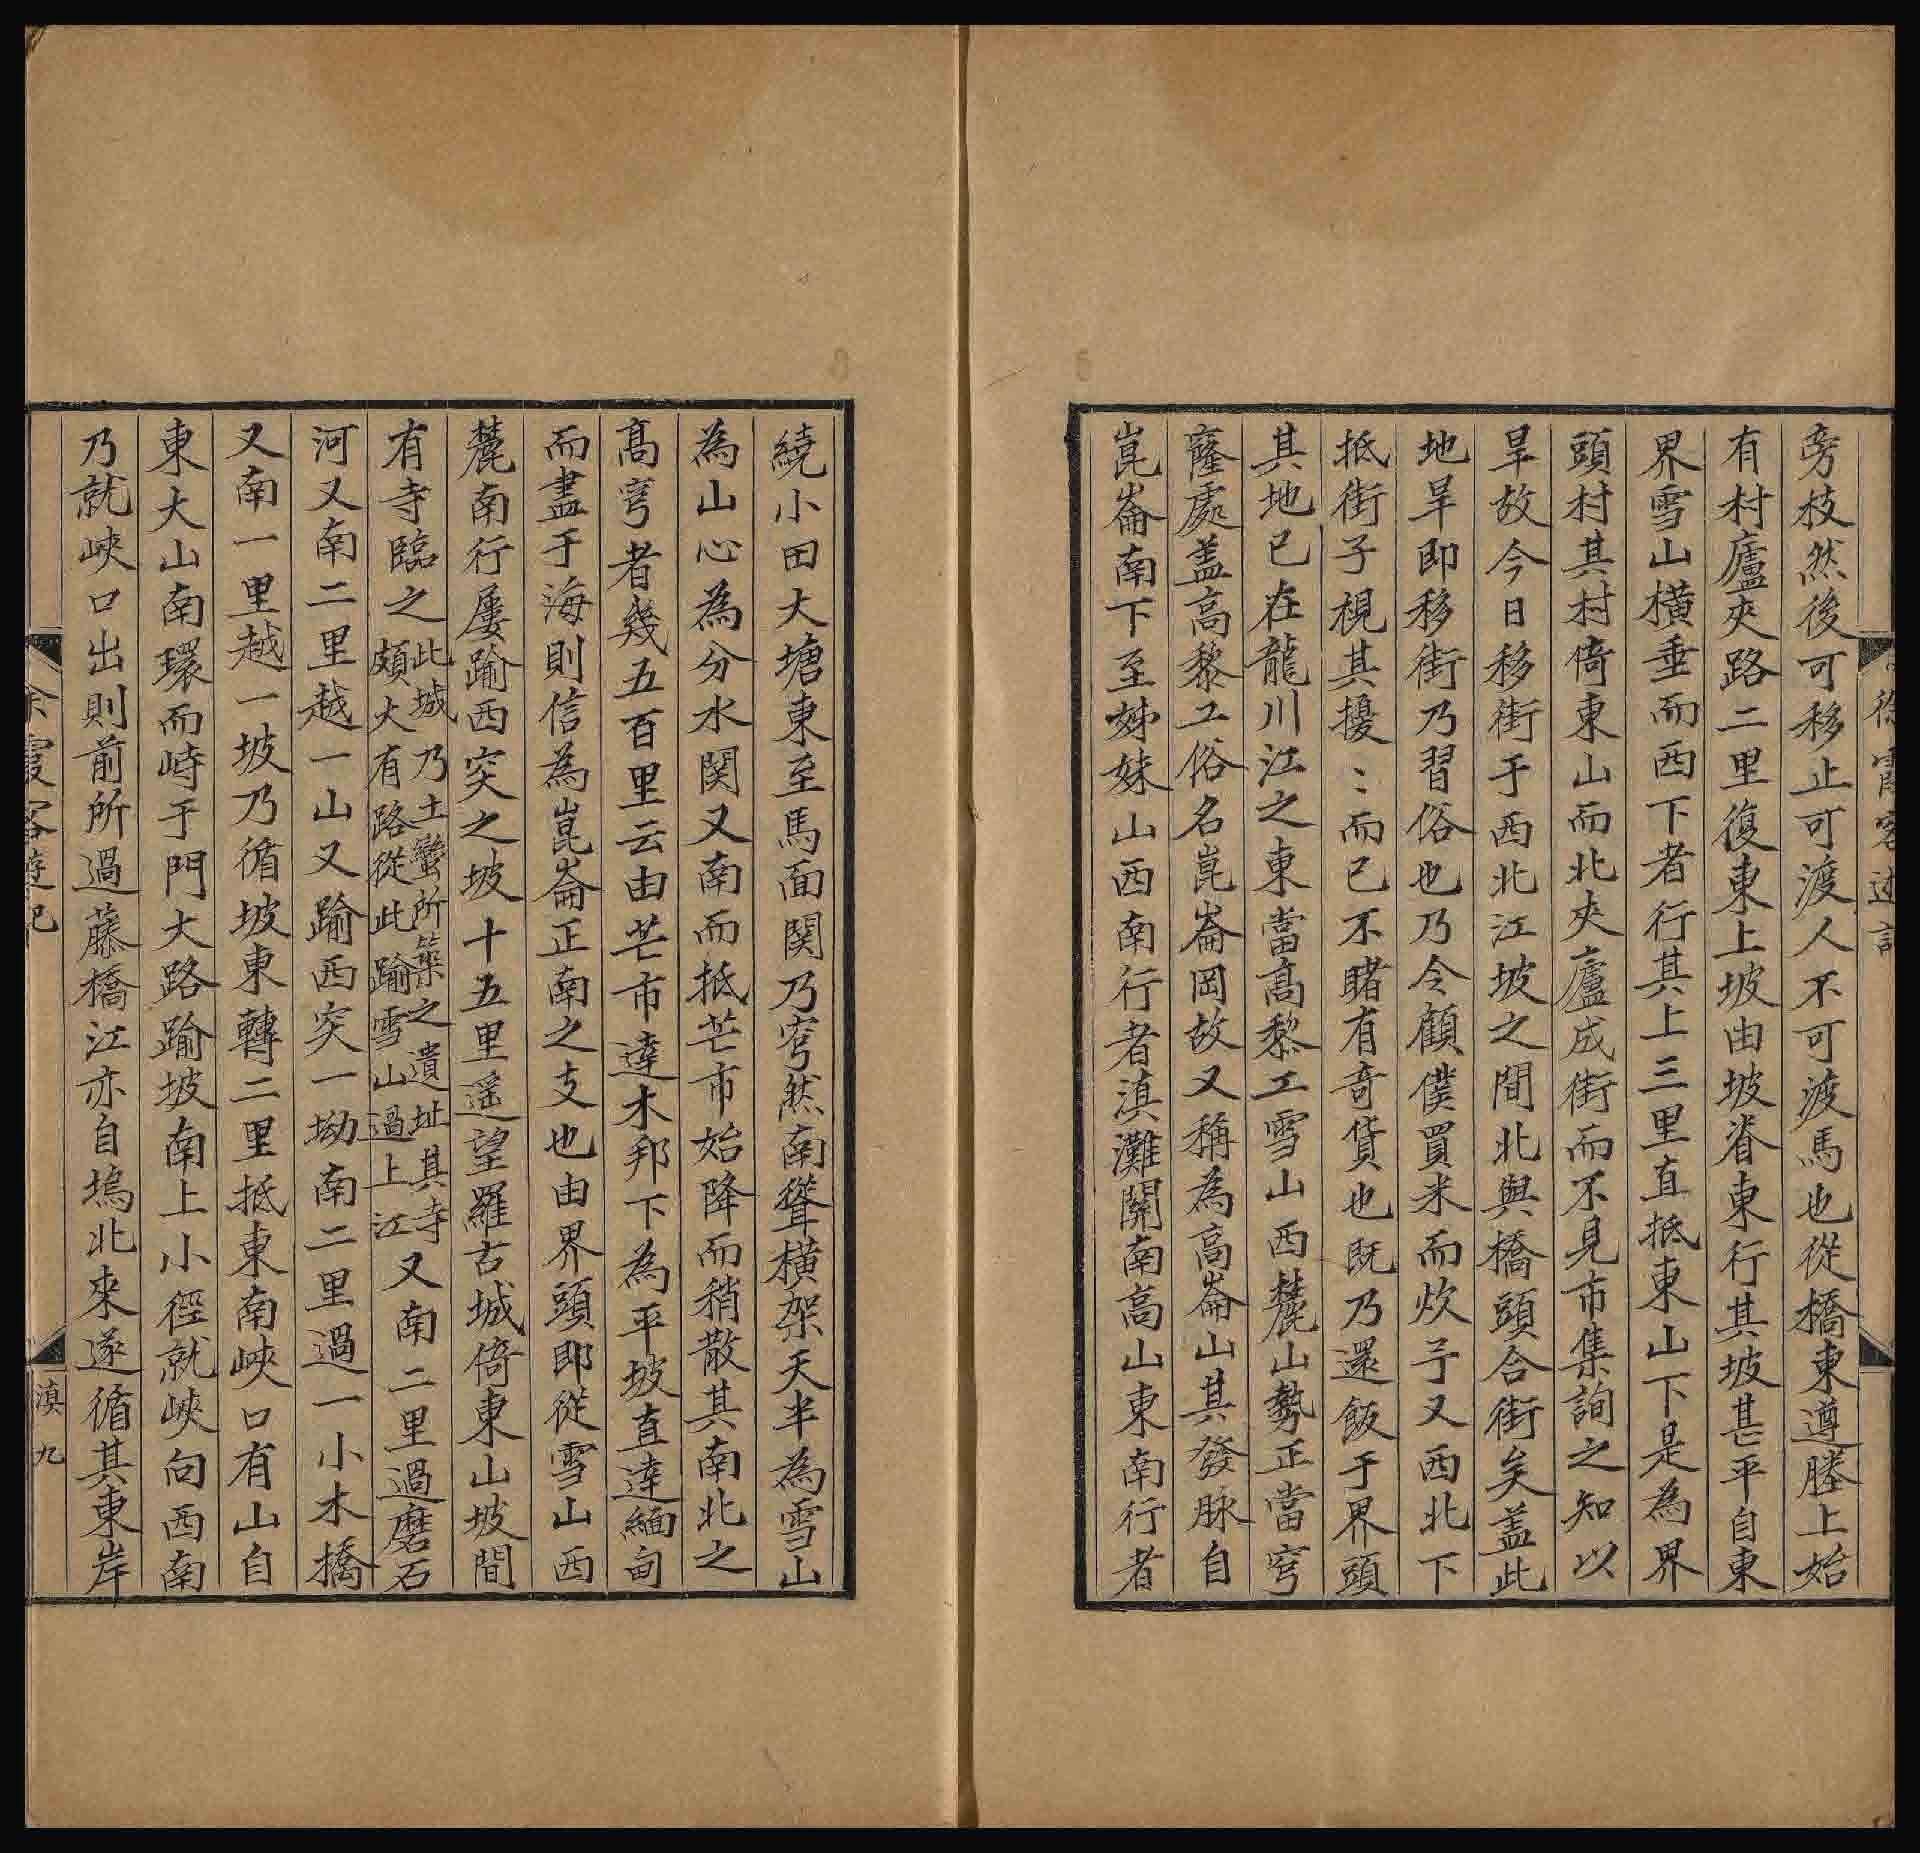 旁枝然後可移止可渡人不可渡馬也從橋東遵塍上始
有村廬夾路二里復東上坡由坡脊東行其坡甚平自東
界雪山橫垂而西下者行其上三里直抵東山下是為界
頭村其村倚東山而北夾廬成街而不見市集詢之知以
旱故今日移街于西北江坡之間北與橋頭合街矣盖此
地旱即移街乃習俗也乃令顧僕買米而炊予又西北下
抵街子視其擾〻而已不睹有奇貨也既乃還飯于界頭
其地已在龍川江之東當高黎工雪山西麓山勢正當穹
窿處盖高黎工俗名崑崙岡故又稱為高崙山其發脉自
崑崙南下至姊妹山西南行者滇灘關南高山東南行者
繞小田大塘東至馬面関乃穹然南聳橫架天半為雪山
為山心為分水関又南而抵芒市始降而稍散其南北之
高穹者幾五百里云由芒市達木邦下為平坡直達緬甸
而盡于海則信為崑崙正南之支也由界頭即從雪山西
麓南行屢踰西突之坡十五里遥望羅古城倚東山坡間
有寺臨之此城乃土蠻所築之遺址其寺頗大有路從此踰雪山過上江又南二里過磨石
河又南二里越一山又踰西突一坳南二里過一小木橋
又南一里越一坡乃循坡東轉二里抵東南峽口有山自
東大山南環而峙于門大路踰坡南上小徑就峽向西南
乃就峽口出則前所過藤橋江亦自塢北來遂循其東岸
霞客遊記
滇九